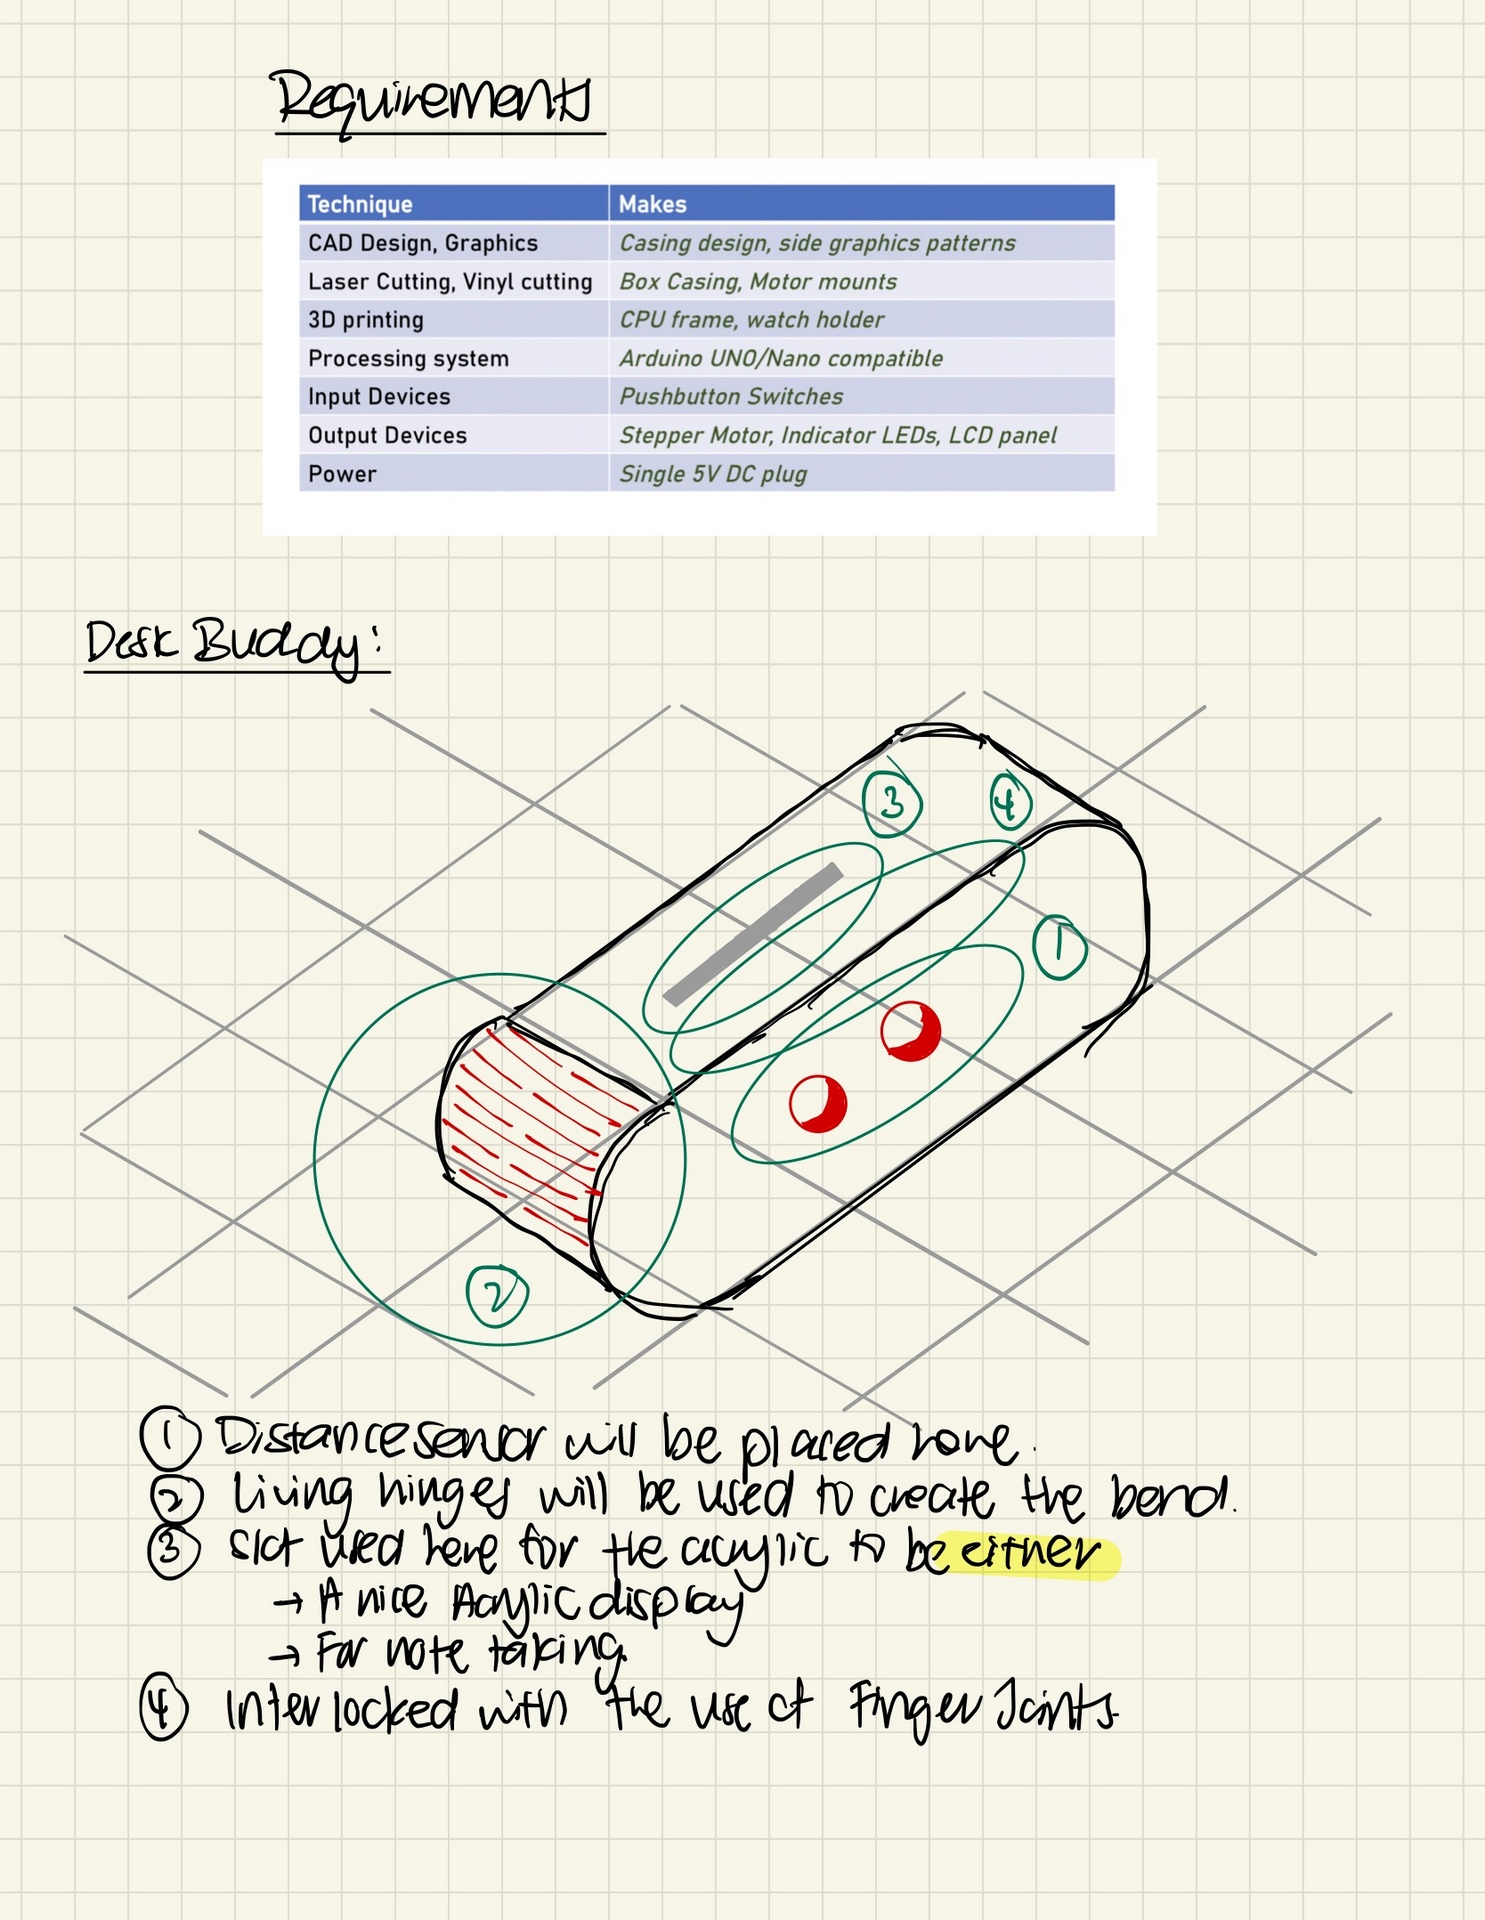 Requirements
Technique Makes
CAD Design, Graphics Casing design, side graphics patterns
Laser Cutting, Vinyl cutting Box Casing, Motor mounts
3D printing CPU frame, watch holder
Processing system Arduino UNO/Nano compatible
Input Devices Pushbutton Switches
Output Devices Stepper Motor, Indicator LEDs, LCD panel
Power Single 5V DC plug
Desk Buddy:
3 4
1
2
1 Distance sensor will be placed here.
2 Living hinges will be used to create the bend.
3 Slot used here for the acrylic to be either
→ A nice Acrylic display
→ For note taking
4 Inter locked with the use of Finger Joints.